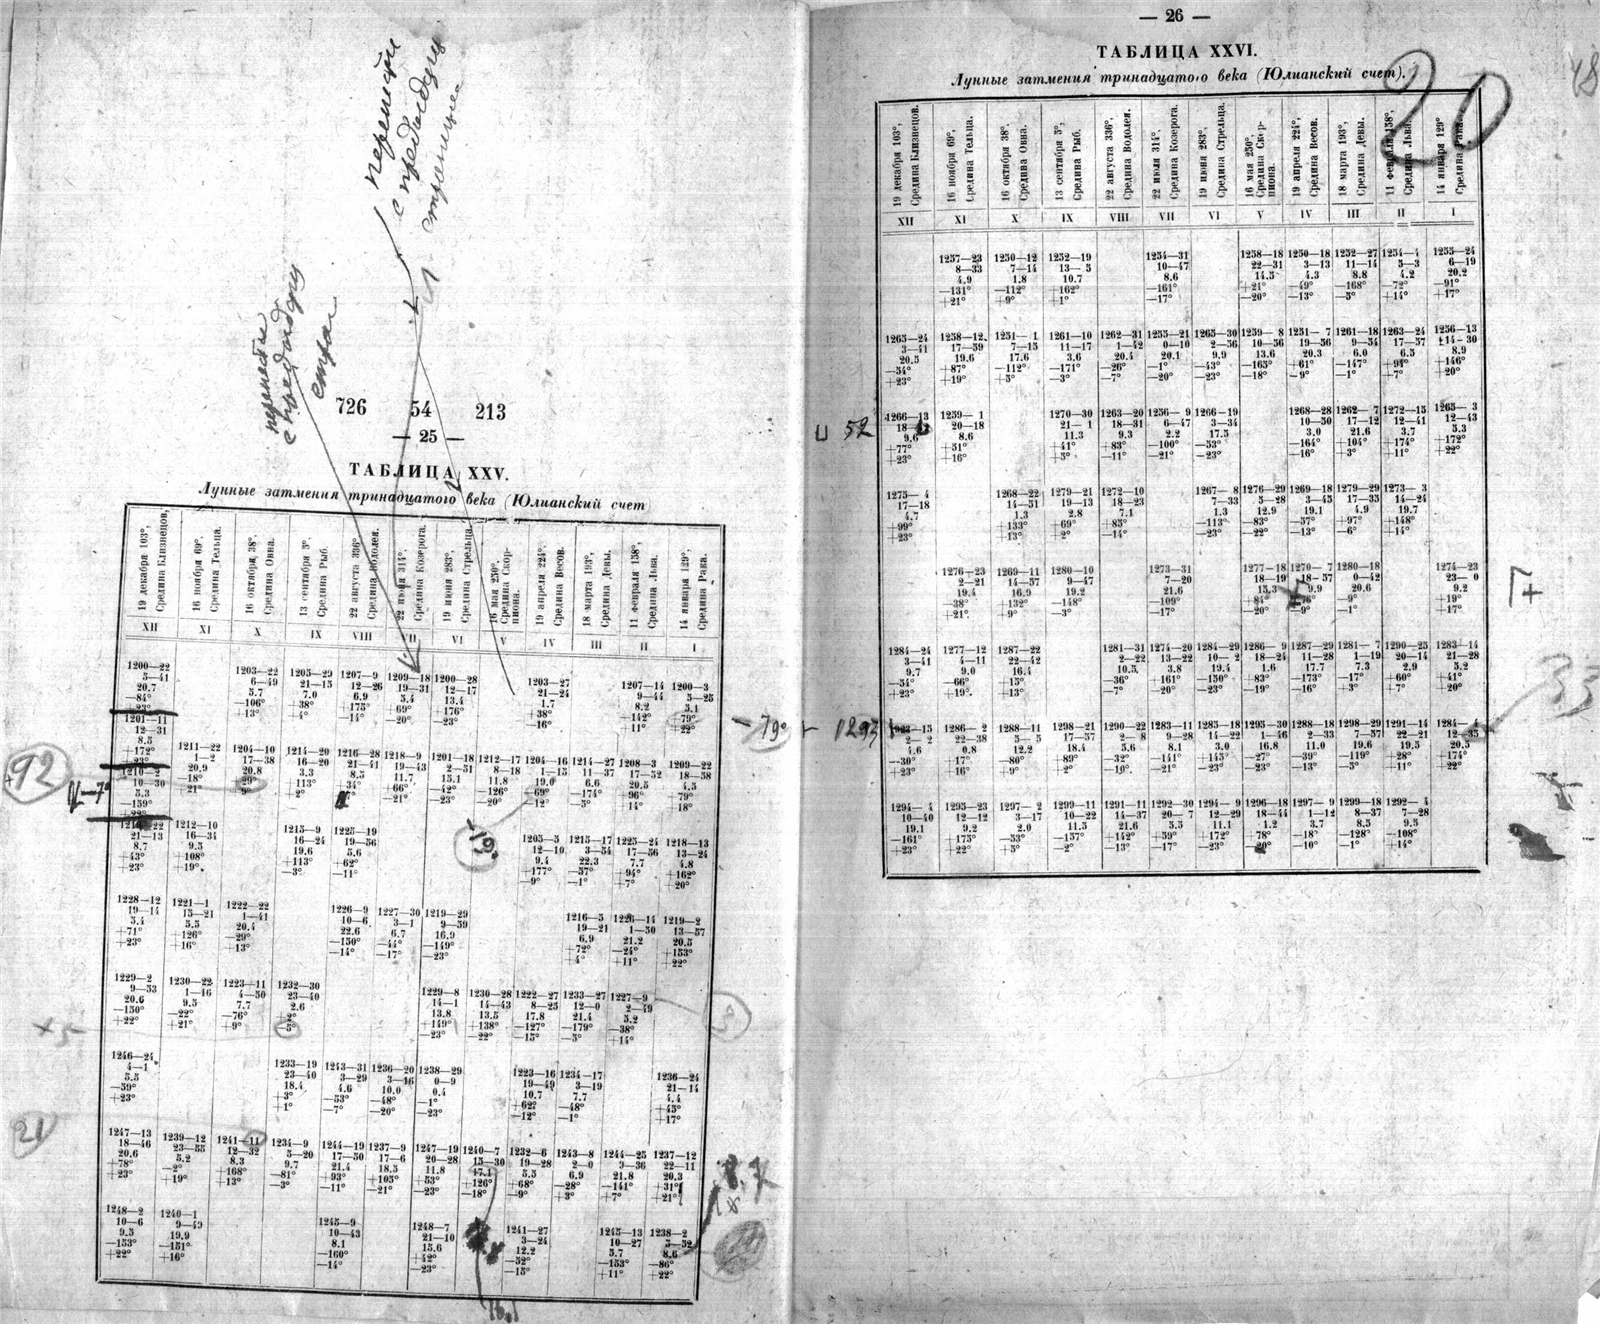 переместить
с предыдущей
страницы
переместить
с предыдущ
страни
726 54 213
— 25 —
ТАБЛИЦА XXV.
Лунные затмения тринадцатого века (Юлианский счет)
19 декабря 103°, Средина Близнецов.
16 ноября 69°, Средина Тельца.
16 октября 38°, Средина Овна.
13 сентября 5°, Средина Рыб.
22 августа 336°, Средина Водолея.
22 июля 314°, Средина Козерога.
19 июня 283°, Средина Стрельца.
16 мая 250°, Средина Скорпиона.
19 апреля 224°, Средина Весов.
18 марта 193°, Средина Девы.
11 февраля 158°, Средина Льва.
14 января 129°, Средина Рака.
XII XI X IX VIII VII VI V IV III II I
1200—22 1203—22 1205—29 1207—9 1209—18 1200—28 1203—27 1207—14 1200—3
5—41 6—49 21—15 12—26 19—31 12—17 21—24 9—44 5—25
20.7 5.7 7.0 6.9 5.4 13.4 1.7 8.2 5.1
—84° —106° +38° +175° +69° +176° +38° —142° +79°
—23° +13° +4° —14° —20° —23° —16° +11° +22°
1201—11
12—31
8.5
+172°
+23°
1211—22 1204—10 1214—20 1216—28 1218—9 1201—18 1212—17 1204—16 1214—27 1208—3 1209—22
1—2 17—38 16—20 21—41 19—43 2—51 8—18 1—15 11—37 17—52 18—58
20.9 20.8 3.3 8.5 11.7 15.1 11.8 19.0 6.6 20.5 4.5
1210—2
10—30
5.3
—159°
1212—10 1215—9 1225—19 1205—5 1215—17 1225—24 1218—13
21—13 16—34 16—24 19—56 12—10 3—54 17—56 13—24
8.7 9.5 19.6 5.6 9.4 22.3 7.7 4.8
+43° +108° +113° +62° +177° —57° +94° +162°
+23° +19° —3° —11° —9° —1° +7° +20°
1228—12 1221—1 1222—22 1226—9 1227—30 1219—29 1216—5 1226—14 1219—2
19—14 15—21 1—41 10—6 3—1 9—59 19—21 1—50 13—57
5.4 5.5 20.4 22.6 6.7 16.9 6.9 21.2 20.5
+71° +126° —29° —150° —44° —149° +72° —24° +153°
+23° +16° +13° —14° —17° —23° +4° +11° +22°
1229—2 1230—22 1223—11 1232—30 1229—8 1230—28 1222—27 1233—27 1227—9
9—53 1—16 4—50 23—40 14—1 14—43 8—25 12—0 2—49
20.6 9.5 7.7 2.6 13.8 13.5 17.8 21.4 5.2
—150° —22° —76° +149° +138° —127° —179° —38°
+22° +21° +9° —23° —22° —15° —5° +14°
1246—24 1233—19 1243—31 1236—20 1238—29 1223—16 1234—17 1236—24
4—1 23—40 3—29 3—16 0—9 19—49 3—19 21—14
5.5 18.4 4.6 10.0 0.4 10.7 7.7 4.4
—59° +3° —53° —48° —1° +62° —48° +45°
+23° +1° —7° —20° —23° —12° —1° +17°
1247—13 1239—12 1241—11 1234—9 1244—19 1237—9 1247—19 1240—7 1232—6 1243—8 1244—25 1237—12
18—46 23—55 12—32 5—20 17—50 17—6 20—28 15—30 19—28 2—0 9—36 22—11
20.6 5.2 8.3 9.7 21.4 18.5 11.8 17.1 5.5 6.9 21.8 20.3
+78° —2° +168° —81° +93° +105° +53° +126° +68° —28° —141° +31°
+23° +19° +13° —3° —11° —21° —23° —18° —9° +3° +7° +21°
1248—2 1240—1 1245—9 1248—7 1241—27 1245—13 1238—2
10—6 9—49 10—43 21—10 3—24 10—27 5—52
9.5 19.9 8.1 15.6 12.2 5.7 8.6
—153° —151° —160° +42° —52° —153° —86°
+22° +16° —14° —23° —15° +11° +22°
92
—19°
×5
3
21
8.7
— 26 —
ТАБЛИЦА XXVI.
Лунные затмения тринадцатого века (Юлианский счет).
20
19 декабря 103°, Средина Близнецов.
16 ноября 69°, Средина Тельца.
16 октября 38°, Средина Овна.
13 сентября 5°, Средина Рыб.
22 августа 336°, Средина Водолея.
22 июля 314°, Средина Козерога.
19 июня 283°, Средина Стрельца.
16 мая 250°, Средина Скорпиона.
19 апреля 224°, Средина Весов.
18 марта 193°, Средина Девы.
11 февраля 158°, Средина Льва.
14 января 129° Средина Рака.
XII XI X IX VIII VII VI V IV III II I
1257—23 1250—12 1252—19 1254—31 1258—18 1250—18 1252—27 1254—4 1255—24
8—33 7—14 13—5 10—47 22—31 3—13 11—14 5—3 6—19
4.9 1.8 10.7 8.6 14.5 4.3 8.8 4.2 20.2
—131° —112° +162° —161° +21° —49° —168° —72° —91°
+21° +9° +1° —17° —20° —13° —5° +14° +17°
1265—24 1258—12 1251—1 1261—10 1262—31 1255—21 1265—30 1259—8 1251—7 1261—18 1263—24 1256—13
3—41 17—59 7—15 11—17 1—42 0—10 2—56 10—56 19—56 9—54 17—57 14—30
20.5 19.6 17.6 3.6 20.4 20.1 9.9 13.6 20.3 6.0 6.5 8.9
—54° +87° —112° —171° —26° —1° —43° —165° +61° —147° +94° +146°
+23° +19° +5° —3° —7° —20° —23° —18° —9° —1° +7° +20°
и 52
1266—13 1259—1 1270—30 1263—20 1256—9 1266—19 1268—28 1262—7 1272—15 1265—3
20—18 21—1 18—31 6—47 3—34 10—50 17—12 12—41 12—43
9.6 8.6 11.3 9.3 2.2 17.5 3.0 21.6 3.7 5.3
+77° +51° +41° +83° —100° —53° —164° +104° +174° +172°
+23° +16° +5° —11° —21° —23° —16° +3° +11° +22°
1275—4 1268—22 1279—21 1272—10 1267—8 1276—29 1269—18 1279—29 1273—3
17—18 14—51 19—13 18—23 7—33 5—28 3—45 17—35 14—24
4.7 1.3 2.8 7.1 1.3 12.9 19.1 4.9 19.7
+99° +133° +69° +85° —113° —83° —57° +97° +148°
+23° +13° +2° —14° —23° —22° —13° —6° +14°
1276—23 1269—11 1280—10 1273—31 1277—18 1270—7 1280—18 1274—23
2—21 14—57 9—47 7—20 18—19 18—57 0—42 23—0
19.4 16.9 19.2 21.6 15.3 9.9 20.6 9.2
—38° +132° —148° —109° +84° —9° +19°
+21° +9° —3° —17° —20° —9° —1° +17°
1284—24 1277—12 1287—22 1281—31 1274—20 1284—29 1286—9 1287—29 1281—7 1290—25 1283—14
3—41 4—11 22—42 2—22 13—22 10—2 18—24 11—28 1—19 20—14 21—28
9.7 9.0 16.4 10.5 3.8 19.4 1.6 17.7 7.3 2.9 5.2
—54° —66° +15° —36° +161° —150° +83° —173° —17° +60° +41°
+23° +19° +13° —7° —20° —23° —19° —16° +3° +7° +20°
—79° 1293
1286—2 1288—11 1298—21 1290—22 1283—11 1285—18 1295—30 1288—18 1298—29 1291—14 1284—4
2—2 22—38 5—5 17—57 2—8 9—28 14—22 1—46 2—33 7—57 22—21 12—35
4.6 0.8 12.2 18.4 5.6 8.1 3.0 16.8 11.0 19.6 19.5 20.5
—30° +16° +80° +89° —32° —141° +145° —27° —39° —119° +28° +174°
+23° +17° +9° +2° —10° —21° —23° —23° —13° —5° +11° +22°
1294—4 1295—23 1297—2 1299—11 1291—11 1292—30 1294—9 1296—18 1297—9 1299—18 1292—4
10—40 12—12 3—17 10—22 14—37 20—7 12—29 18—44 1—12 8—37 7—28
19.1 9.2 2.0 11.5 21.6 5.5 11.1 1.2 3.7 8.5 9.5
—161° +175° —53° —157° +142° +59° +172° +78° —18° —128° —108°
+23° +22° +5° —2° —13° —17° —23° —20° —10° —1° +14°